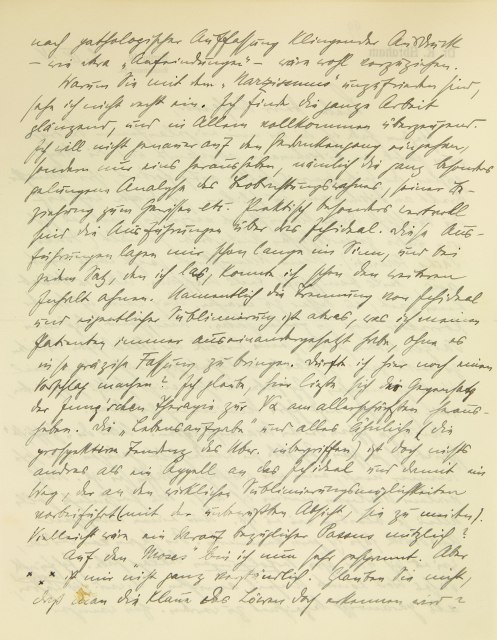 nach pathologischer Auffassung klingender Ausdruck
– wie etwa „Anfeindungen“ – wäre wohl vorzuziehen.
Warum Sie mit dem „Narzissmus“ unzufrieden sind,
sehe ich nicht recht ein. Ich finde die ganze Arbeit
glänzend, und in Allem vollkommen überzeugend.
Ich will nicht genauer auf den Gedankengang eingehen,
sondern nur eins herausheben, nämlich die ganz besonders
gelungene Analyse des Beobachtungswahnes, seiner Be-
ziehung zum Gewissen etc. Praktisch besonders wertvoll
sind die Ausführungen über das Ichideal. Diese Aus-
führungen lagen mir schon lange im Sinn, und bei
jedem Satz, den ich las, konnte ich schon den weiteren
Inhalt ahnen. Namentlich die Trennung von Ichideal
und eigentlicher Sublimierung ist etwas, was ich meinen
Patienten immer auseinandergesetzt habe, ohne es
in so präzise Fassung zu bringen. Dürfte ich hier noch einen
Vorschlag machen? Ich glaube, hier ließe sich der Gegensatz
der Jung'schen Therapie zur ΨA am allerschärfsten heraus-
heben. Die „Lebensaufgabe“ und alles Ähnliche (die
prospektive Tendenz des Ubw. inbegriffen) ist doch nichts
andres als ein Appell an das Ichideal und damit ein
Weg, der an den wirklichen Sublimierungsmöglichkeiten
vorbeiführt (mit der unbewußten Absicht, sie zu meiden).
Vielleicht wäre ein hierauf bezüglicher Passus nützlich?
Auf den „Moses“ bin ich nun sehr gespannt. Aber
ist mir nicht ganz verständlich. Glauben Sie nicht,
daß man die Klaue des Löwen doch erkennen wird?